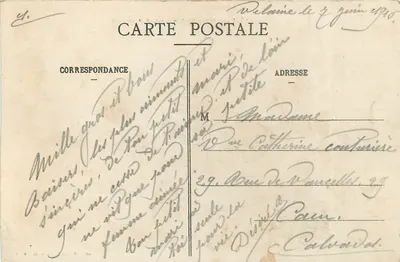 Velaine le 7 juin 1910
CARTE POSTALE
CORRESPONDANCE
ADRESSE
Mille gros et bons
Baisers, les plus aimants et
sincères, de ton petit mari,
qui ne cesse de t'aimer et de loin
ne vit que pour sa petite
femme aimée
Ton petit
mari
toi seule
pour la
vie
Désiré
M Madame
Vve Catherine couturière
29, Rue de Vaucelles, 29
Caen
Calvados.